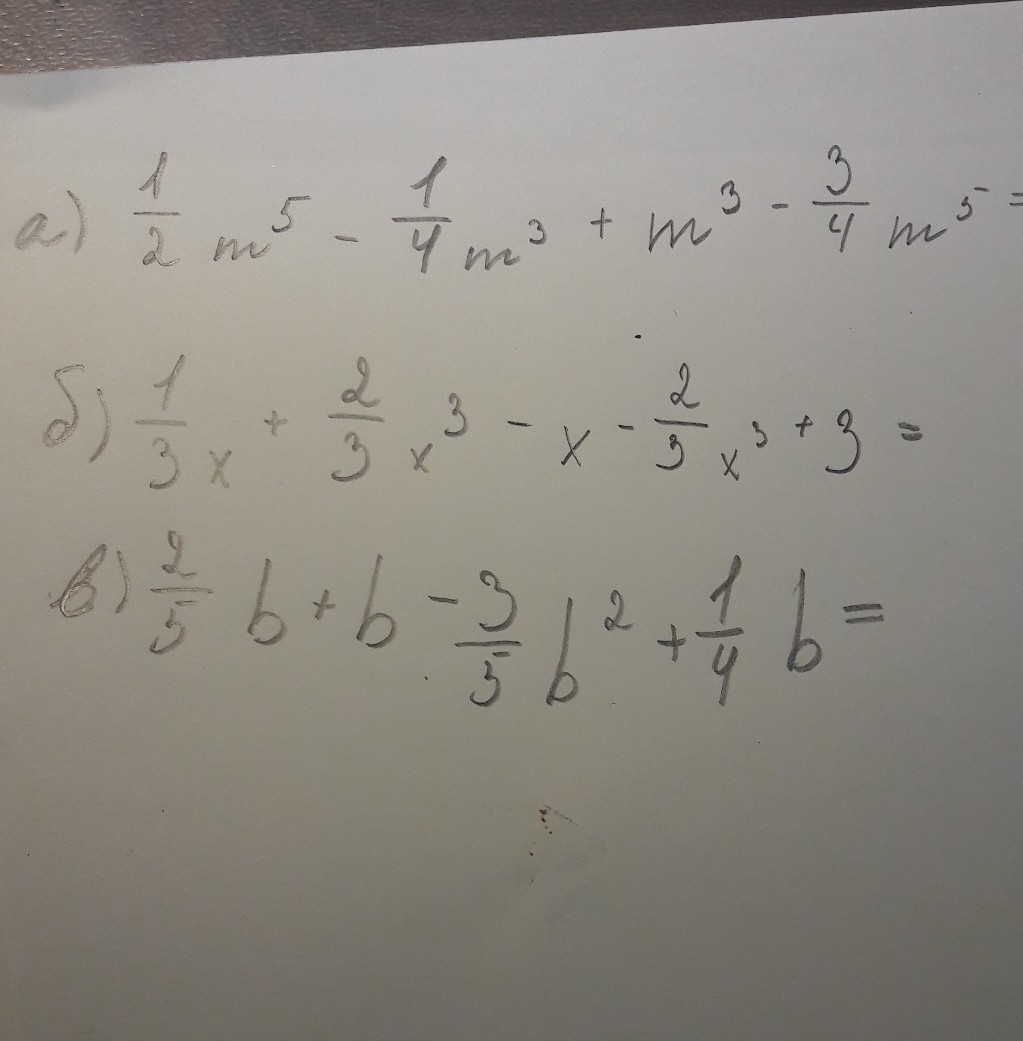 а) 1/2 m⁵ - 1/4 m³ + m³ - 3/4 m⁵ =
б) 1/3 x + 2/3 x³ - x - 2/3 x³ + 3 =
в) 2/5 b + b - 3/5 b² + 1/4 b =